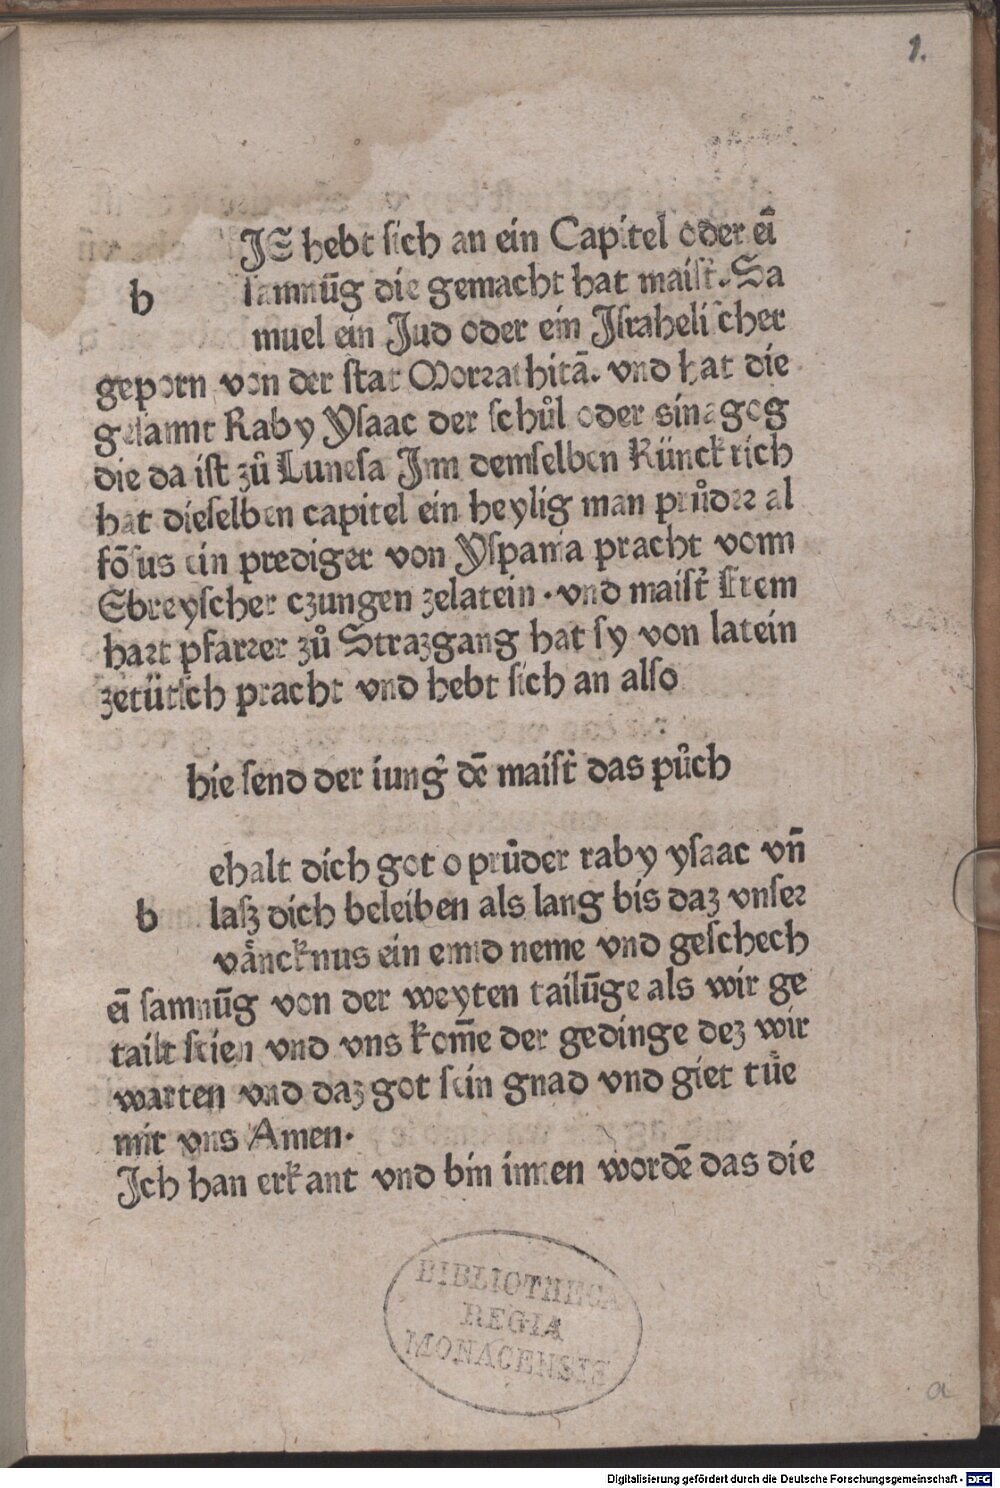 1.
JS hebt sich an ein Capitel oder eī
h samnūg die gemacht hat maist̉. Sa
muel ein Jud oder ein Jsrahelischer
geporn von der stat Morrathitā. vnd hat die
gesannt Raby Ysaac der schůl oder sinagog
die da ist zů Lunesa Jnn demselben Künckrich
hat dieselben capitel ein heylig man průder al
fōsus ein prediger von Yspania pracht vonn
Ebreyscher czungen zelatein. vnd maist̉ Irem
hart pfarrer zů Strazgang hat sy von latein
zetütsch pracht vnd hebt sich an also
hie send der iung̉ dē maist̉ das půch
ehalt dich got o průder raby ysaac vn̄
b lasz dich beleiben als lang bis daz vnser
väncknus ein ennd neme vnd geschech
eī samnūg von der weyten tailūge als wir ge
tailt seien vnd vns kom̄e der gedinge dez wir
warten vnd daz got sein gnad vnd giet tüe
mit vns Amen.
Jch han erkant vnd bin innen wordē das die
BIBLIOTHECA
REGIA
MONACENSIS
a
Digitalisierung gefördert durch die Deutsche Forschungsgemeinschaft - DFG